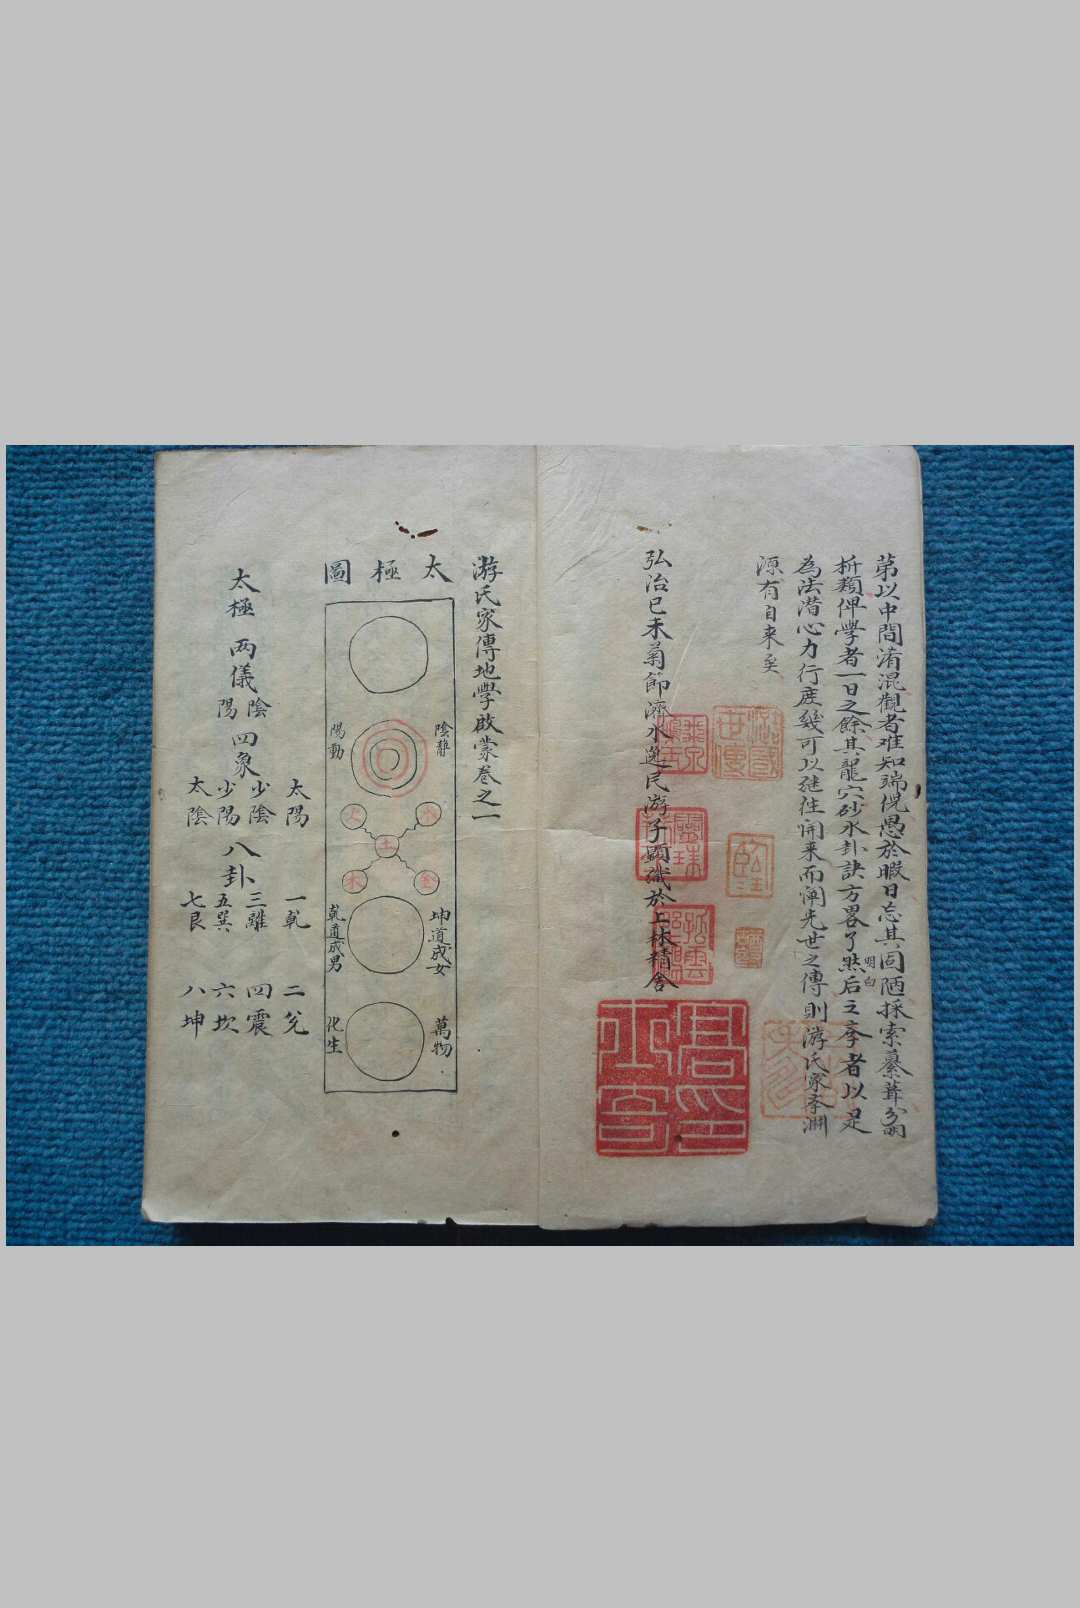 第以中間淆混觀者难知端倪愚於暇日忘其固陋採索纂葺分門
析類俾學者一日之餘其龍穴砂水卦訣方畧了然后之孝者以是
明白
為法潜心力行庶幾可以继往開来而闡先世之傳則游氏家孝渊
源有自来矣
弘治己未菊節濟水逸民游子顕識於上林精舍
游氏家傳地學啟蒙卷之一
太極圖
陰静
陽動
水
火
土
金
木
坤道成女
乾道成男
萬物
化生
太極
两儀
陰
陽
四象
太陽
少陰
少陽
太陰
八卦
一乾
二兌
三離
四震
五巽
六坎
七艮
八坤